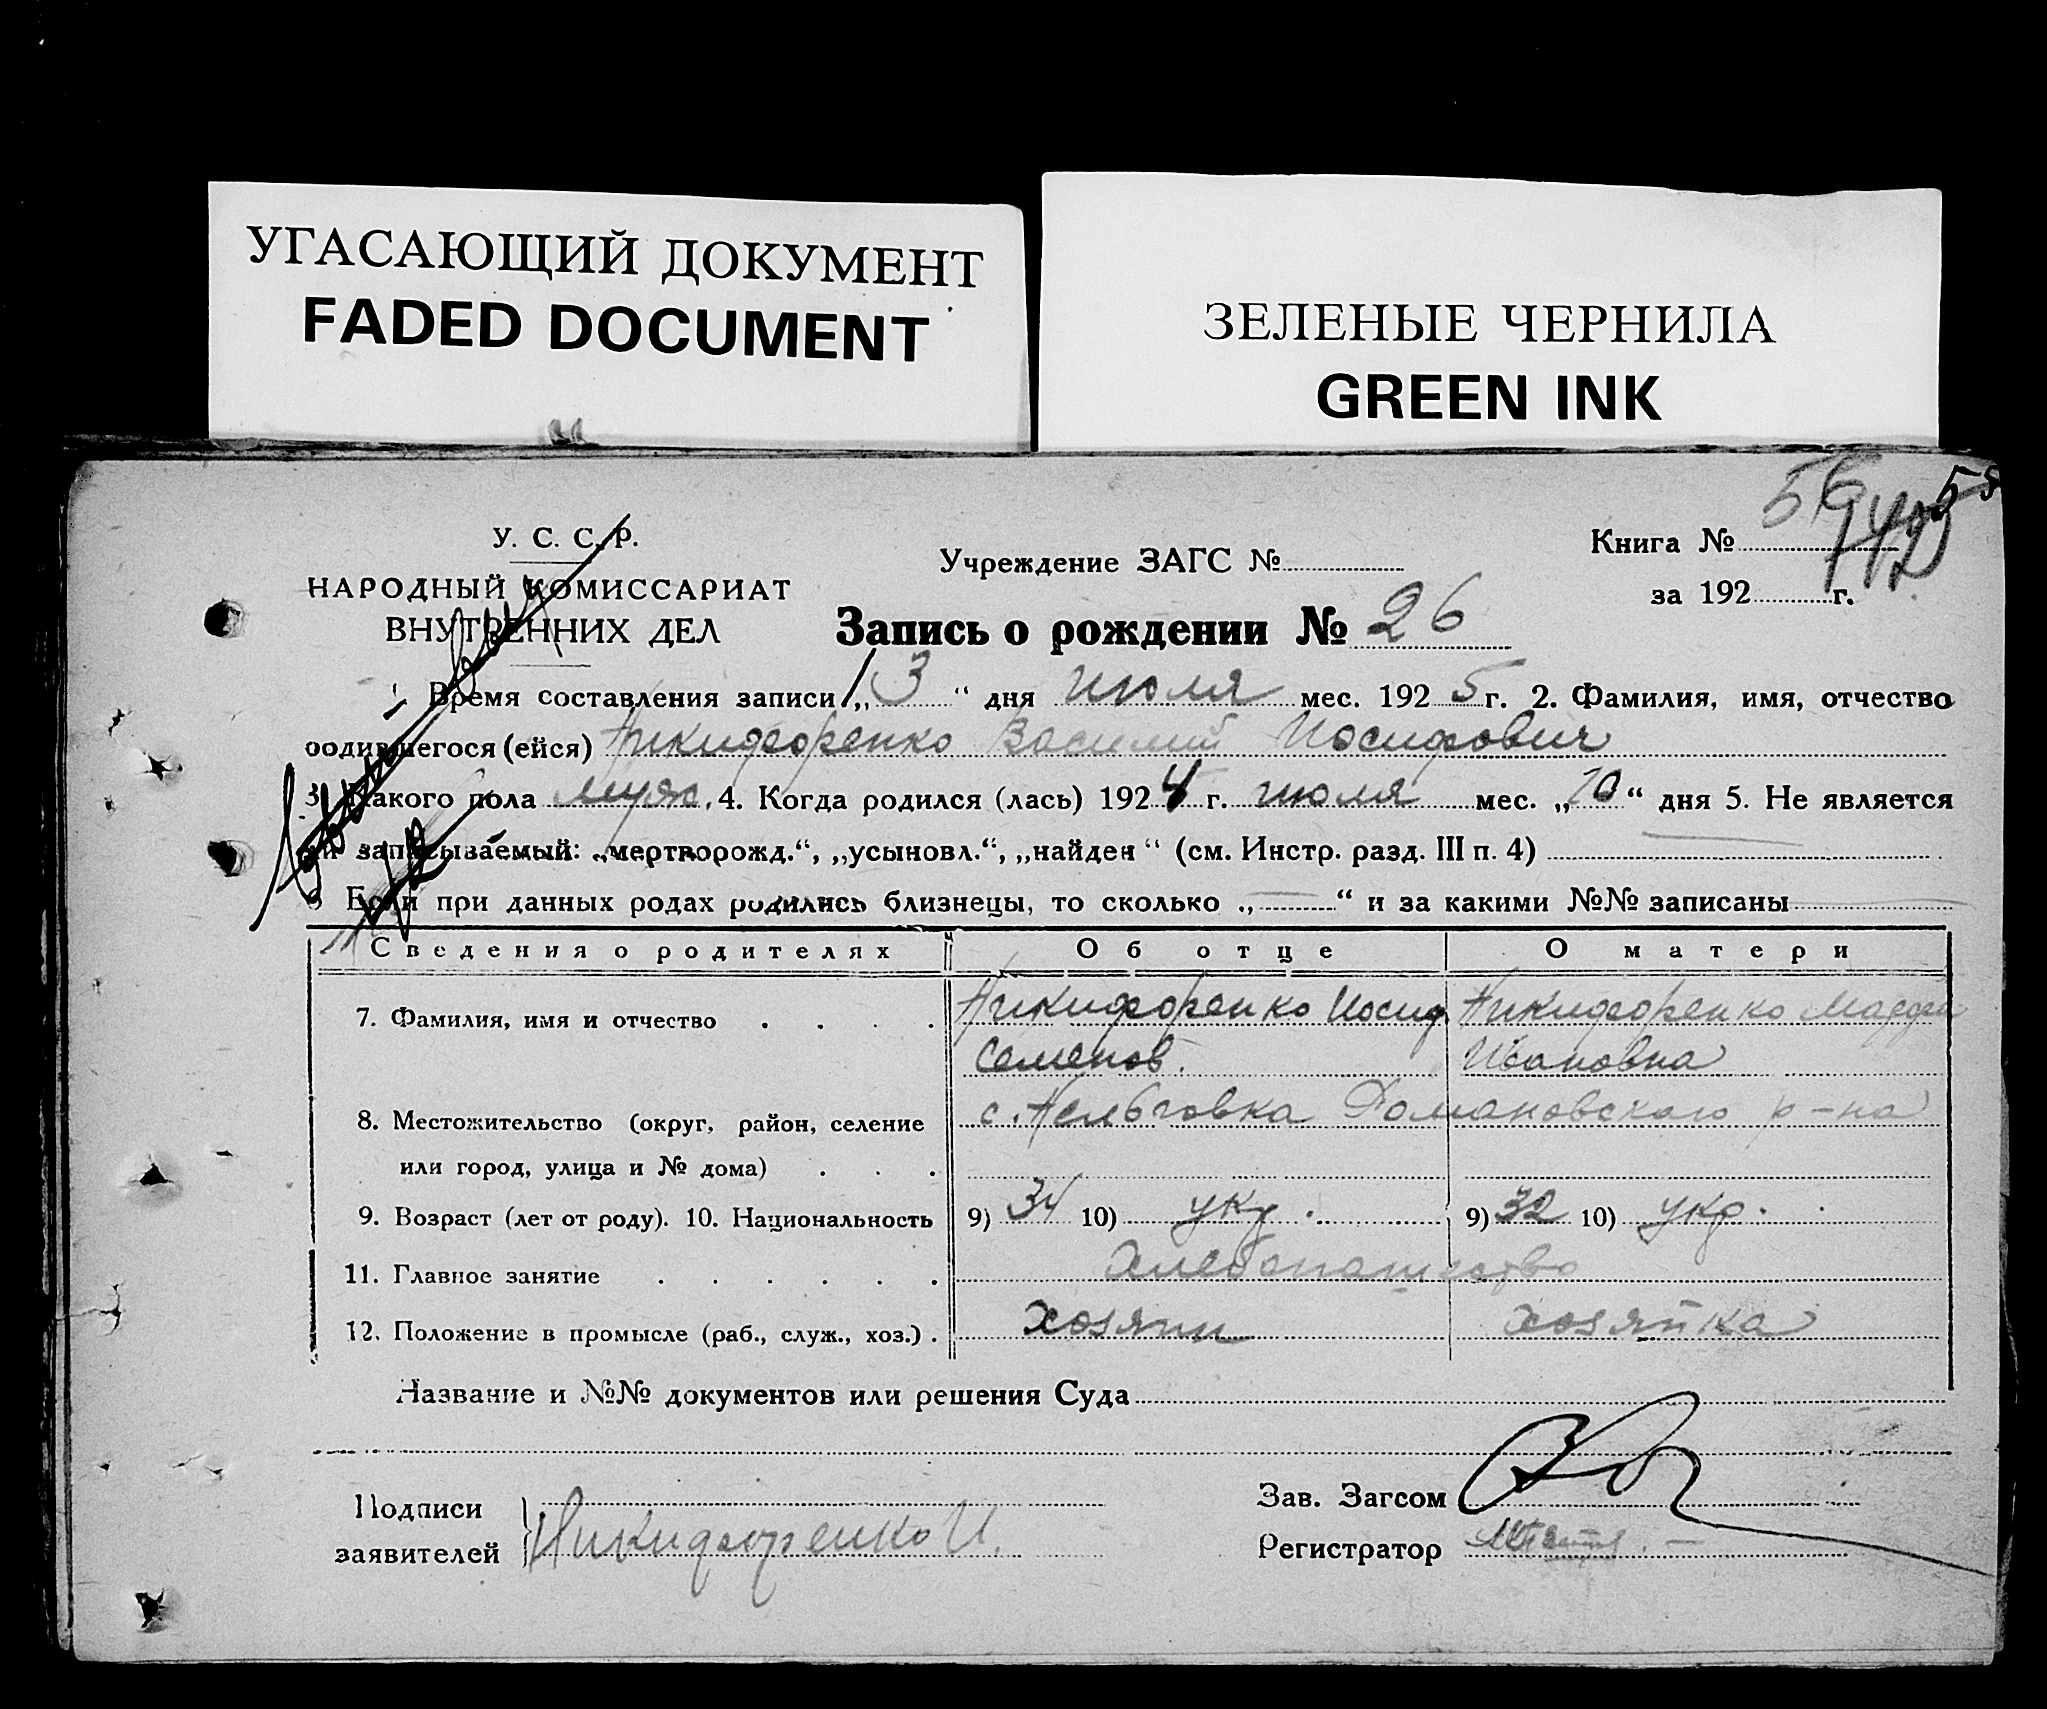 УГАСАЮЩИЙ ДОКУМЕНТ
FADED DOCUMENT
ЗЕЛЕНЫЕ ЧЕРНИЛА
GREEN INK
56 55
У. С. С. Р.
НАРОДНЫЙ КОМИССАРИАТ
ВНУТРЕННИХ ДЕЛ
Учреждение ЗАГС №
Книга №
за 192 г.
Запись о рождении № 26
1. Время составления записи „ 3 “ дня июля мес. 1925 г. 2. Фамилия, имя, отчество
родившегося (ейся) Никифоренко Василий Иосифович
3. Какого пола муж. 4. Когда родился (лась) 1924 г. июля мес. „10“ дня 5. Не является
ли записываемый: „мертворожд.“, „усыновл.“, „найден“ (см. Инстр. разд. III п. 4)
6 Если при данных родах родились близнецы, то сколько „ — “ и за какими №№ записаны
Сведения о родителях Об отце О матери
7. Фамилия, имя и отчество . . . . Никифоренко Иосиф Никифоренко
Семенов. Ивановна
8. Местожительство (округ, район, селение с. Романовского р-на
или город, улица и № дома) . . .
9. Возраст (лет от роду). 10. Национальность 9) 34 10) укр. 9) 32 10) укр.
11. Главное занятие . . . . . . Хлебопашество
12. Положение в промысле (раб., служ., хоз.) . хозяин хозяйка
Название и №№ документов или решения Суда
Подписи
заявителей Никифоренко И.
Зав. Загсом
Регистратор